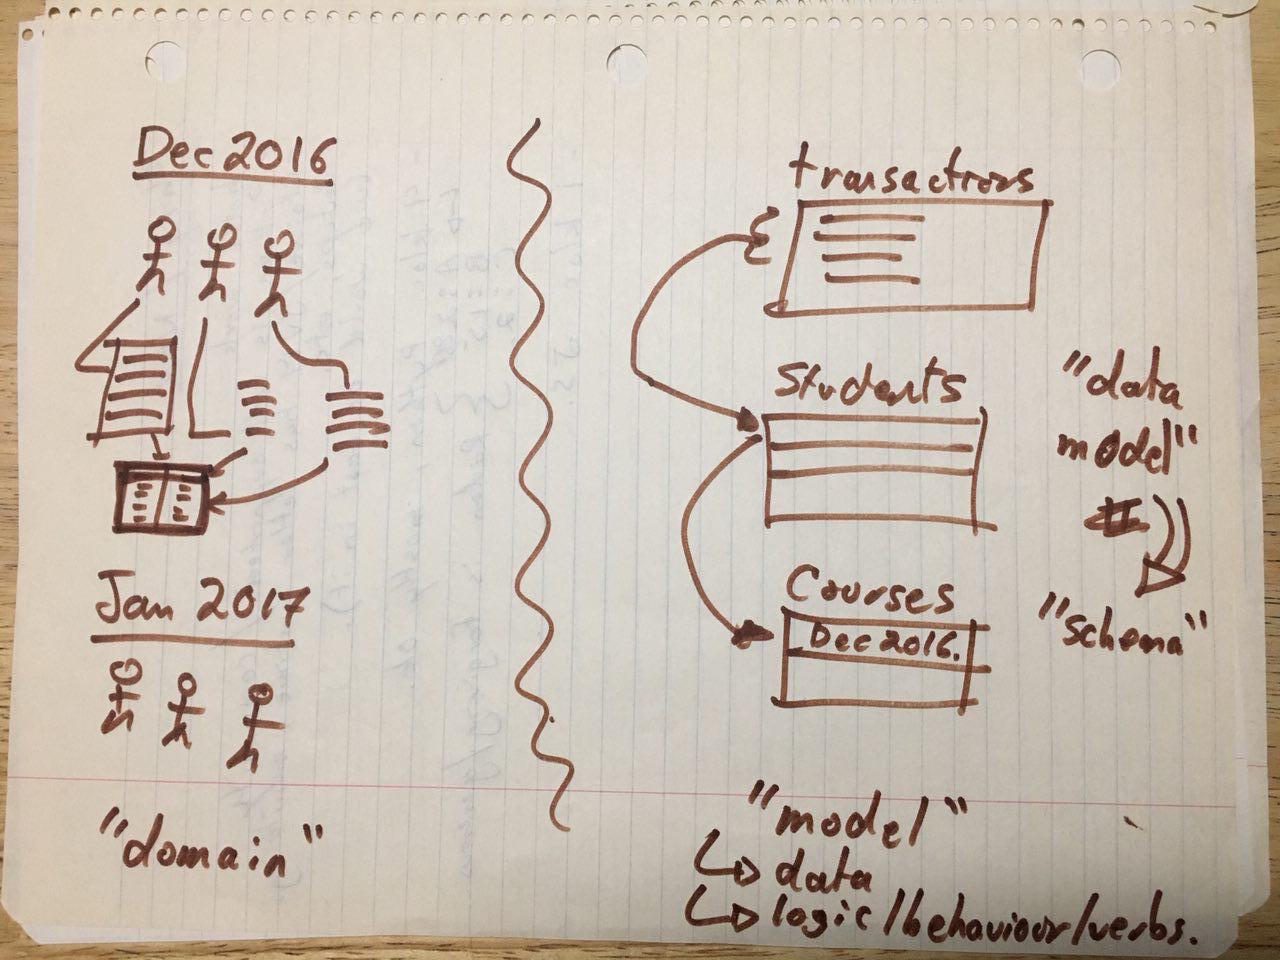 Dec 2016
Jan 2017
"domain"
transactions
Students
Courses
Dec 2016.
"data
model"
"schema"
"model"
data
logic/behaviour/verbs.